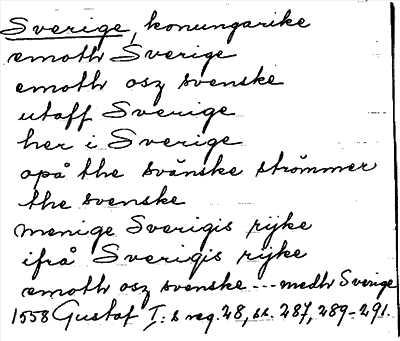 Sverige, konungarike
emoth Sverige
emoth osz svenske
utaff Sverige
her i Sverige
opå the svänske strömmer
the svenske
menige Sverigis rijke
ifrå Sverigis rijke
emoth osz svenske --- medh Sverige
1558 Gustaf I:s reg. 28, ss. 287, 289-291.